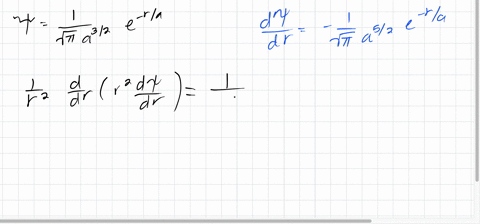 ψ = 1/(√π a^{3/2}) e^{-r/a}
dψ/dr = - 1/(√π a^{5/2}) e^{-r/a}
1/r² d/dr (r² dψ/dr) = 1/